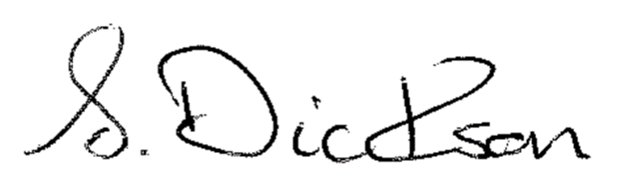 S. Dickson